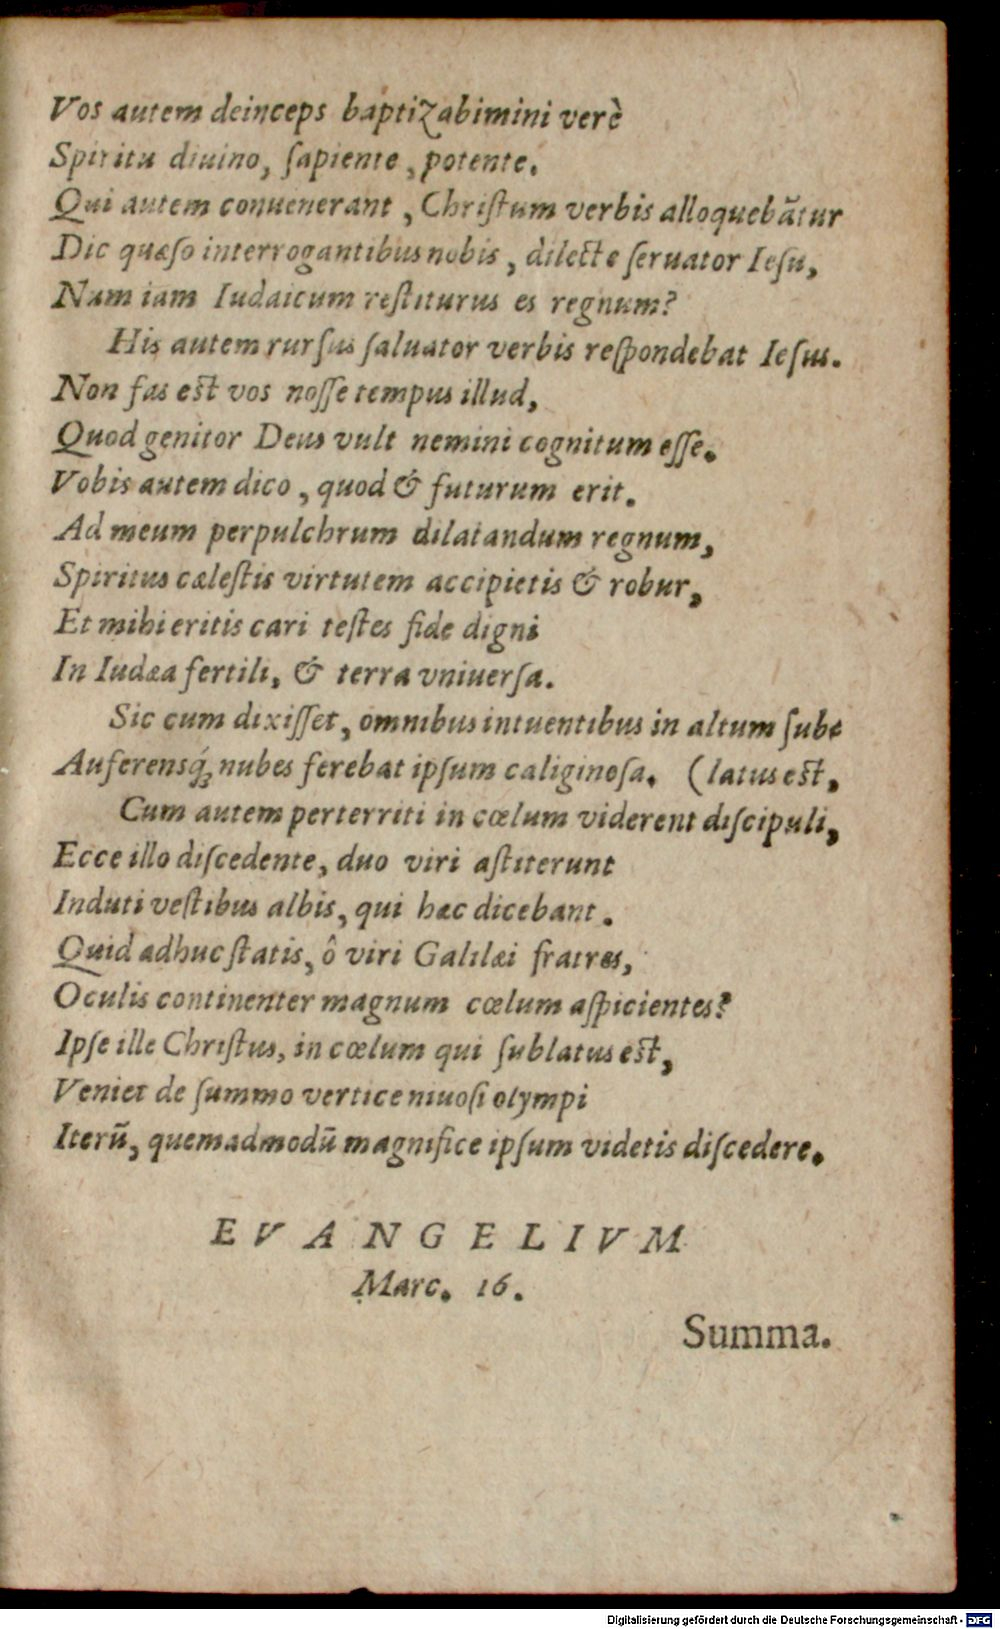 Vos autem deinceps baptizabimini verè
Spiritu diuino, ſapiente, potente.
Qui autem conuenerant, Chriſtum verbis alloquebãtur
Dic quæſo interrogantibus nobis, dilecte ſeruator Ieſu,
Nam iam Iudaicum reſtiturus es regnum?
His autem rurſus ſaluator verbis reſpondebat Ieſus.
Non fas eſt vos noſſe tempus illud,
Quod genitor Deus vult nemini cognitum eſſe.
Vobis autem dico, quod & futurum erit.
Ad meum perpulchrum dilatandum regnum,
Spiritus cæleſtis virtutem accipietis & robur,
Et mihi eritis cari teſtes fide digni
In Iudæa fertili, & terra vniuerſa.
Sic cum dixiſſet, omnibus intuentibus in altum ſube
Auferensq́ꝫ nubes ferebat ipſum caliginoſa. (latus eſt,
Cum autem perterriti in cœlum viderent diſcipuli,
Ecce illo diſcedente, duo viri aſtiterunt
Induti veſtibus albis, qui hæc dicebant.
Quid adhuc ſtatis, ô viri Galilæi fratres,
Oculis continenter magnum cœlum aſpicientes?
Ipſe ille Chriſtus, in cœlum qui ſublatus eſt,
Veniet de ſummo vertice niuoſi olympi
Iterũ, quemadmodũ magnifice ipſum videtis diſcedere.
EVANGELIVM
Marc. 16.
Summa.
Digitalisierung gefördert durch die Deutsche Forschungsgemeinschaft - DFG